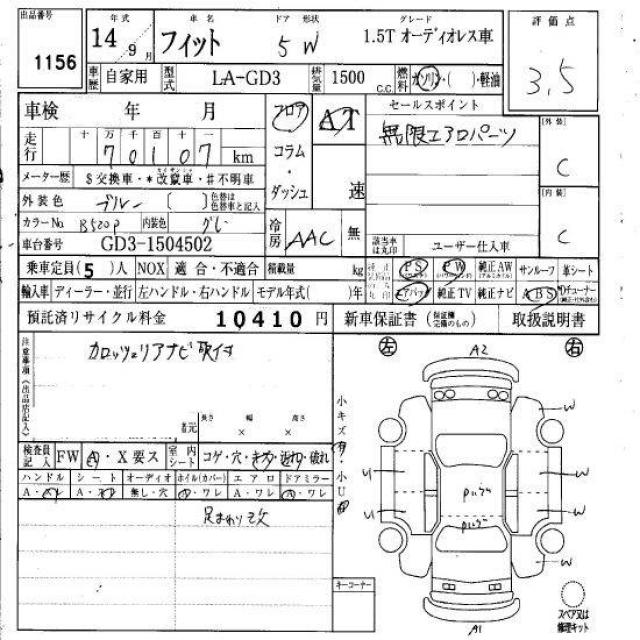 出品番号 年式 車名 ドア 形状 グレード 評価点
1156 14年 9月 フィット 5 W 1.5T オーディオレス車 3.5
車歴 自家用 型式 LA-GD3 排気量 1500 C.C. 燃料 ガソリン・( )・軽油
車検 年 月 フロア AT セールスポイント
無限エアロパーツ
[外装] C
走行 十万千百十一 70107 km コラム・ダッシュ 速
メーター歴 $交換車・*改竄車・#不明車
[内装] C
外装色 ブルー ( ) 色替は色替車と記入
カラーNo B520P 内装色 グレー 冷房 AAC 無
車台番号 GD3-1504502 該当車は丸印 ユーザー仕入車
乗車定員(5)人 NOX 適合・不適合 積載量 kg PS PW 純正AW サンルーフ 革シート
輸入車 ディーラー・並行 左ハンドル・右ハンドル モデル年式( )年 エアバッグ 純正TV 純正ナビ ABS
預託済リサイクル料金 10410 円 新車保証書 (保証欄完備のもの) 取扱説明書
注意事項(出品店記入)
カロッツェリアナビ取付
左 A2 右
長さ 幅 高さ
者元 × ×
小キズ有・小U
検査員記入 FW A・X要ス 室内シート コゲ・穴・キズ・汚れ・破れ
ハンドル シート オーディオ ホイル(カバー) エアロ ドアミラー
A・スレ A・スレ 無し・穴 A・ワレ A・ワレ A・ワレ
足まわり改
W
U W
U W
W
キーコーナー
A1
スペア又は修理キット